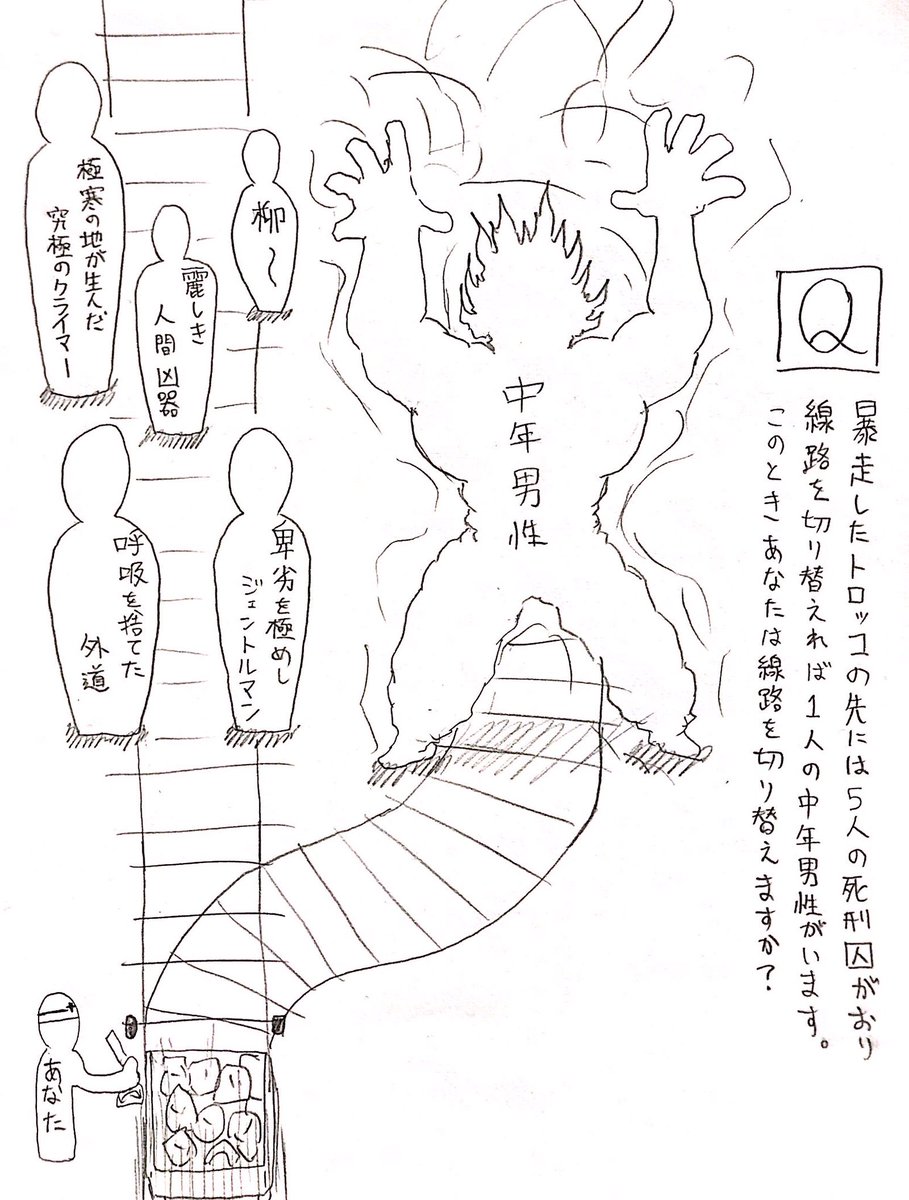 Q
暴走したトロッコの先には5人の死刑囚がおり
線路を切り替えれば1人の中年男性がいます。
このときあなたは線路を切り替えますか？
中年男性
柳〜
麗しき
人間凶器
極寒の地が生んだ
究極のクライマー
卑劣を極めし
ジェントルマン
呼吸を捨てた
外道
あなた